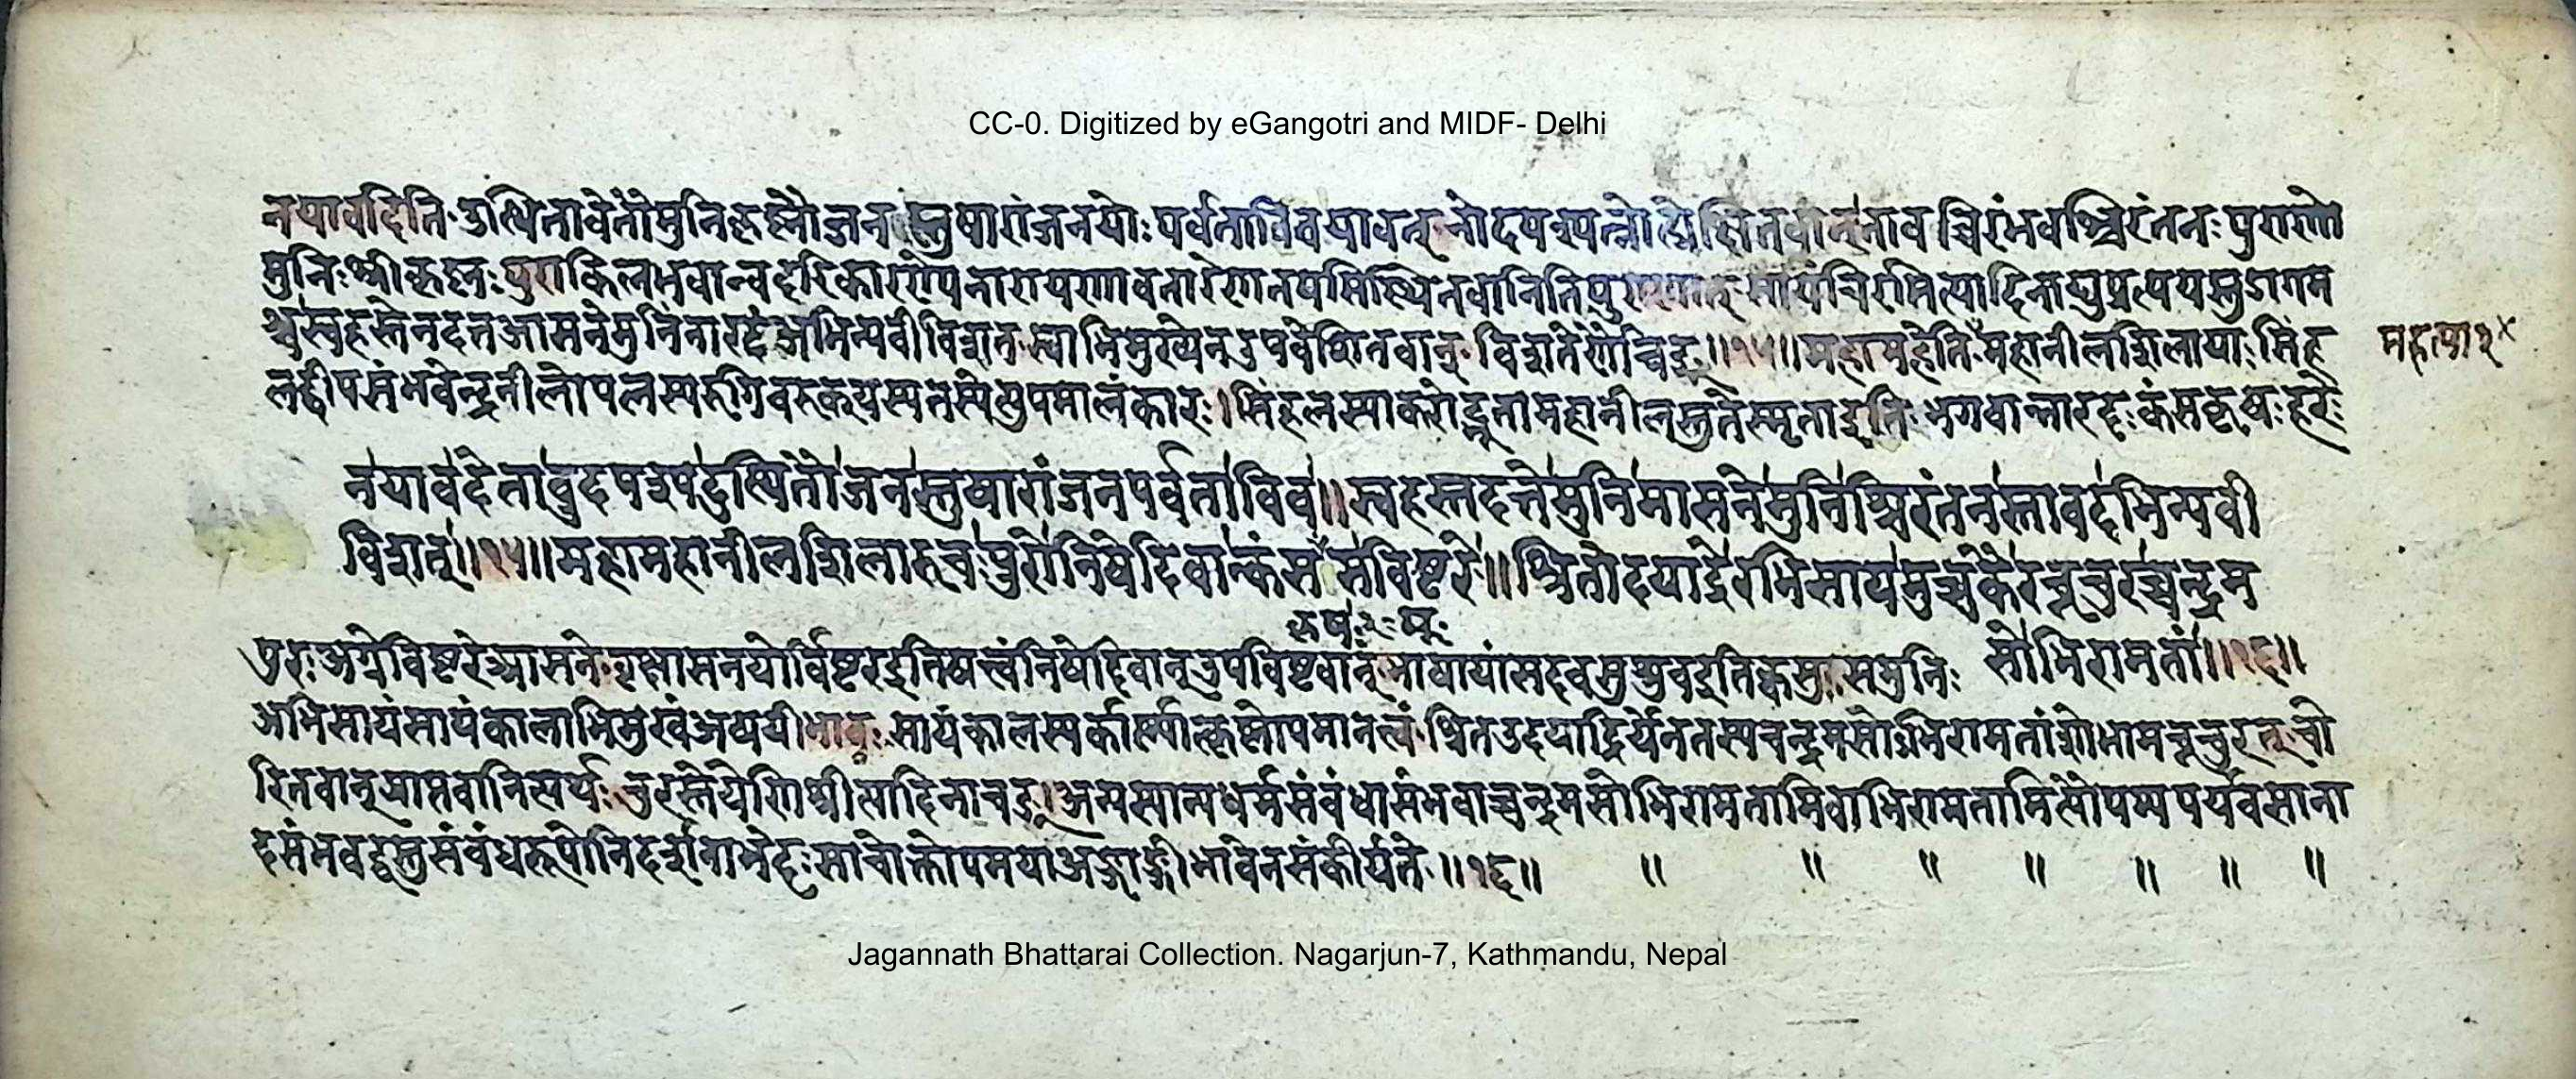 CC-0. Digitized by eGangotri and MIDF- Delhi
नयावदिति उत्थितावेतौमुनिकृष्णौजन स्तुषारांजनयोः पर्वताविवयावत् नोदपश्यत्नोद्वीक्षितवान् तावच्चिरंभवश्चिरंतनः पुराणो
मुनिः श्रीकृष्णः पुराकिलभवान्वदरिकारण्येनारायणावतारेणतपसिस्थितवानितिपुराणात् सायंचिरमित्यादिनाट्युप्रत्ययस्तुडागम
श्च स्वहस्तेनदत्तआसनेमुनिंनारदंअभिन्यवीविशत् स्वाभिमुख्येनउपवेशितवान् विशतेर्णौचङ् ॥१५॥ महामहेति महानीलशिलायाः सिंह
लद्वीपसंभवेन्द्रनीलोपलस्यरुगिवरुक्यस्यतस्येत्युपमालंकारः । सिंहलस्याकरोद्भूतामहानीलस्तुतेस्मृताइति भगवान्नारदः कंसकृषः हरेः
महत्या१
नयावदेतावुदपश्यदुत्थितौजनस्तुषारांजनपर्वताविव ॥ स्वहस्तदत्तेमुनिमासनेमुनिश्चिरंतनस्तावदभिन्यवी
विशत् ॥१५॥ महामहानीलशिलारुचः पुरोनिषेदिवान्कंस सविष्टरे ॥ श्रितोदयाद्रेरभिसायमुच्चकैरचूचुरच्चन्द्रम
कृषः
सोभिरामतां ॥१६॥
पुरः अग्रेविष्टरेआसने वृक्षासनयोर्विष्टरइतिषत्वंनिषेदिवान् उपविष्टवान् भाषायांसदवसश्रुवइतिक्वसुः समुनिः
अभिसायंसायंकालाभिमुखंअव्ययीभावः सायंकालस्यकार्ष्ण्यात्कृष्णोपमानत्वं श्रितउदयाद्रिर्येनतस्यचन्द्रमसोऽभिरामतांशोभामचूचुरत् चो
रितवान् प्राप्तवानित्यर्थः चुरस्तेयेणिश्रीत्यादिनाचङ् । अन्यस्यान्यधर्मसंवंधासंभवाच्चन्द्रमसोभिरामतामिवाभिरामतामित्यौपम्यपर्यवसाना
दसंभवद्वस्तुसंवंधरूपोनिदर्शनाभेदः साचोक्तोपमयाअङ्गाङ्गीभावेनसंकीर्यते ॥१६॥ ॥ ॥ ॥ ॥ ॥ ॥ ॥
Jagannath Bhattarai Collection. Nagarjun-7, Kathmandu, Nepal